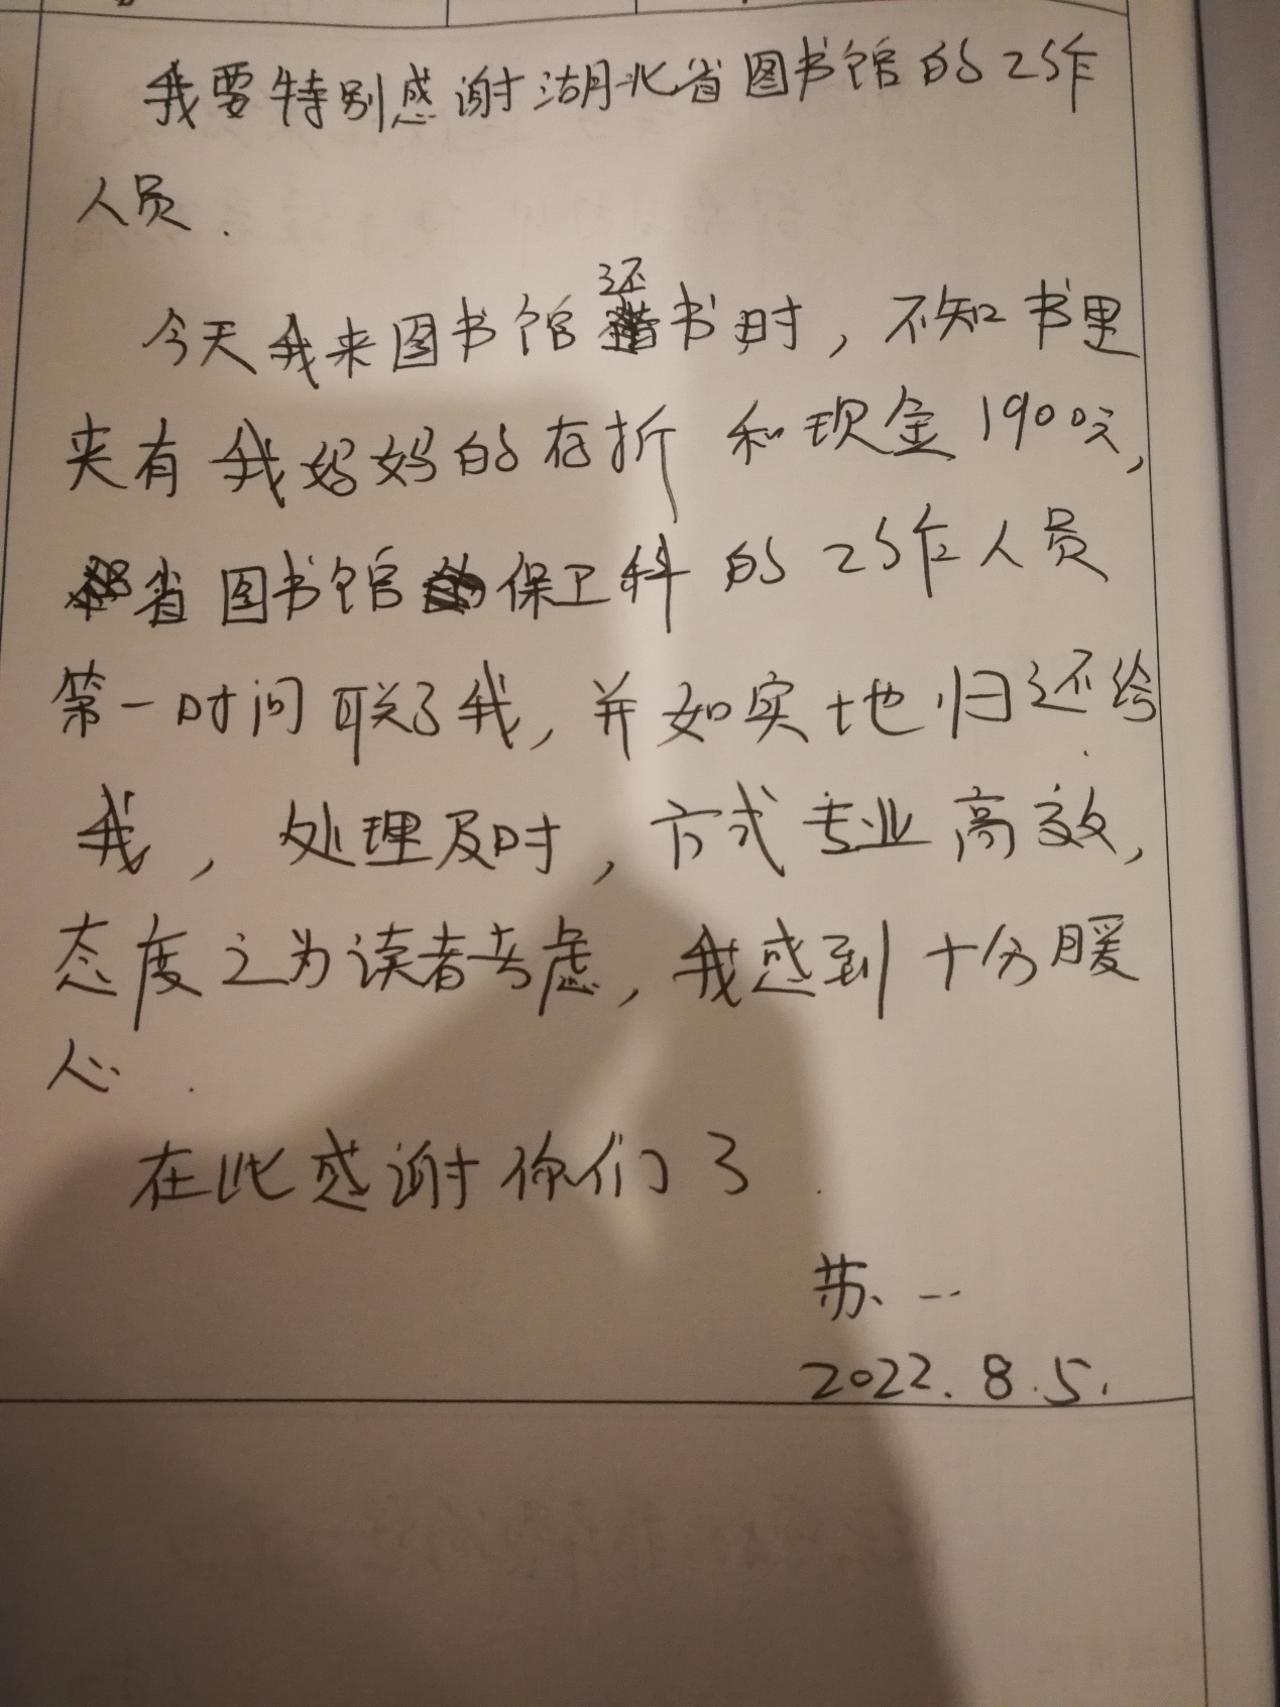 我要特别感谢湖北省图书馆的工作
人员.
今天我来图书馆还书时，不知书里
夹有我妈妈的存折和现金1900元，
省图书馆保卫科的工作人员
第一时间联了我，并如实地归还给
我，处理及时，方式专业高效，
态度之为读者考虑，我感到十分暖
心.
在此感谢你们了.
苏一
2022.8.5.